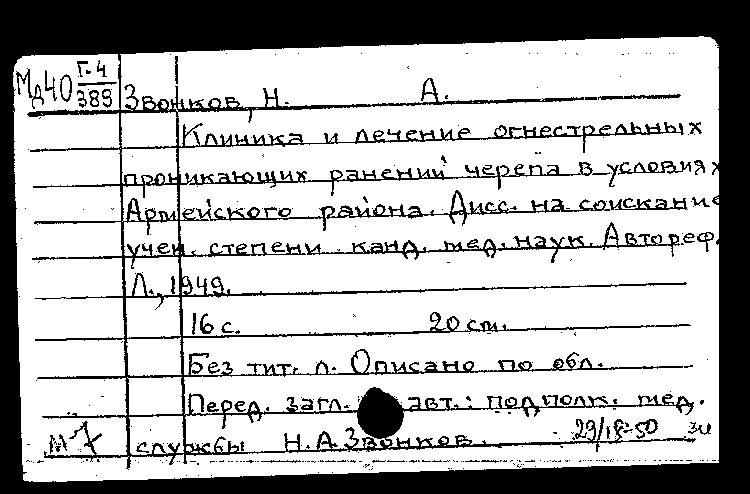 Мд40 Г-4/389 Звонков, Н. А.
Клиника и лечение огнестрельных
проникающих ранений черепа в условиях
Армейского района. Дисс. на соискание
учен. степени канд. мед. наук. Автореф.
Л., 1949.
16 с. 20 см.
Без тит. л. Описано по обл.
Перед. загл. авт.: подполк. мед.
М-7 службы Н.А Звонков.